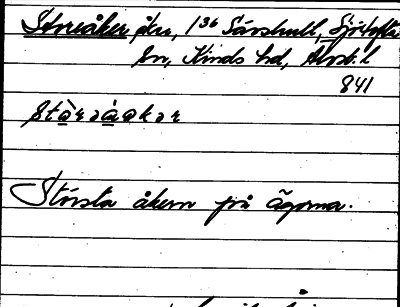 Storeåker åker, 1³⁶ Sävshult, Sjötofta
sn, Kinds hd, Älvsb. l
841
stòrəåkər
Största åkern på ägorna.